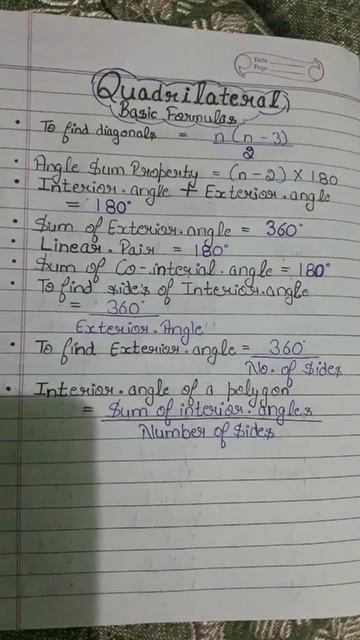 Date
Page
Quadrilateral
Basic Formulas
• To find diagonals = n(n-3)
2
• Angle Sum Property = (n-2) × 180
• Interior angle + Exterior angle
= 180°
• Sum of Exterior angle = 360°
• Linear Pair = 180°
• Sum of Co-interial angle = 180°
• To find sides of Interior angle
= 360°
Exterior Angle
• To find Exterior angle = 360°
No. of Sides
• Interior angle of a polygon
= Sum of interior angles
Number of Sides